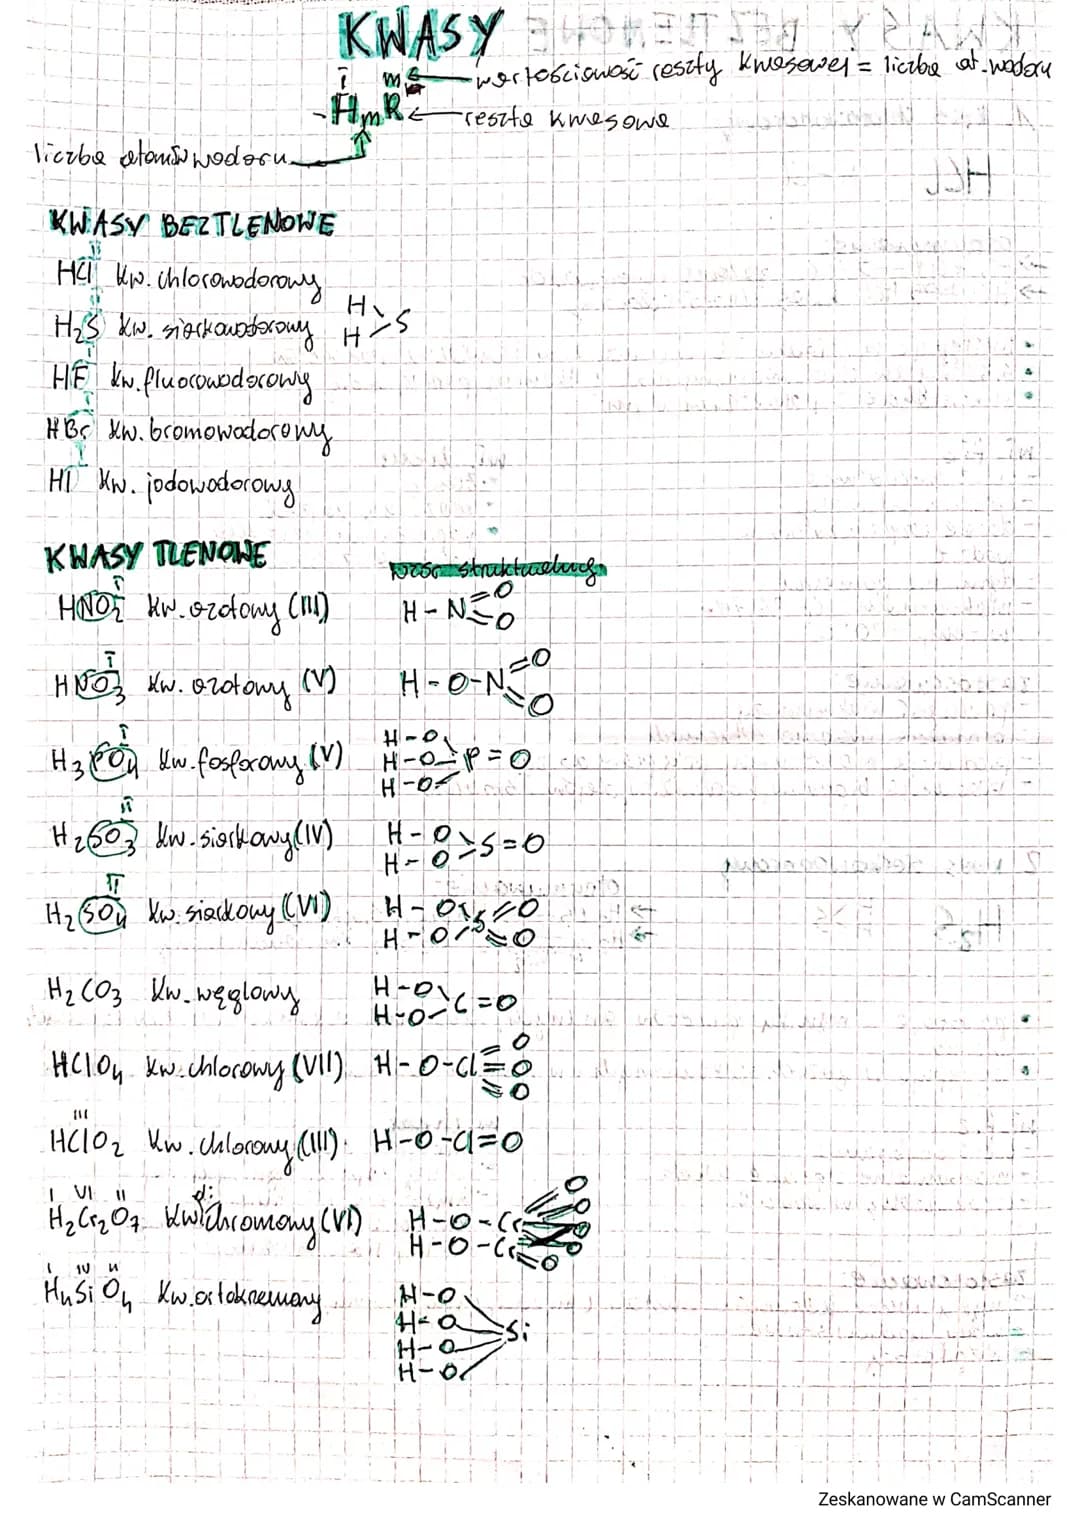 KWASY
I m wartościowość reszty kwasowej = liczba at. wodoru
HmR reszta kwasowa
liczba atomów wodoru
KWASY BEZTLENOWE
HCl kw. chlorowodorowy
H₂S kw. siarkowodorowy H H S
HF kw. fluorowodorowy
HBr kw. bromowodorowy
HI kw. jodowodorowy
KWASY TLENOWE
wzór strukturalny
HNO₂ kw. azotowy (III) H-N=O =O
HNO₃ kw. azotowy (V) H-O-N=O =O
H₃PO₄ kw. fosforowy (V) H-O H-O H-O P=O
H₂SO₃ kw. siarkowy (IV) H-O H-O S=O
H₂SO₄ kw. siarkowy (VI) H-O H-O S=O =O
H₂CO₃ kw. węglowy H-O H-O C=O
HClO₄ kw. chlorowy (VII) H-O-Cl=O =O =O
III
HClO₂ kw. chlorowy (III) H-O-Cl=O
I VI II di
H₂Cr₂O₇ kw. chromowy (VI) H-O-Cr H-O-Cr O O O O O
I IV II
H₄SiO₄ kw. ortokrzemowy H-O H-O H-O H-O Si
Zeskanowane w CamScanner